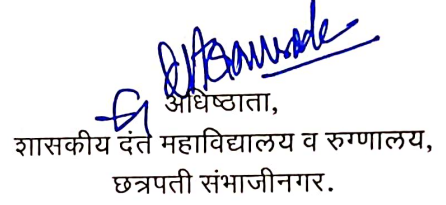 अधिष्ठाता,
शासकीय दंत महाविद्यालय व रुग्णालय,
छत्रपती संभाजीनगर.